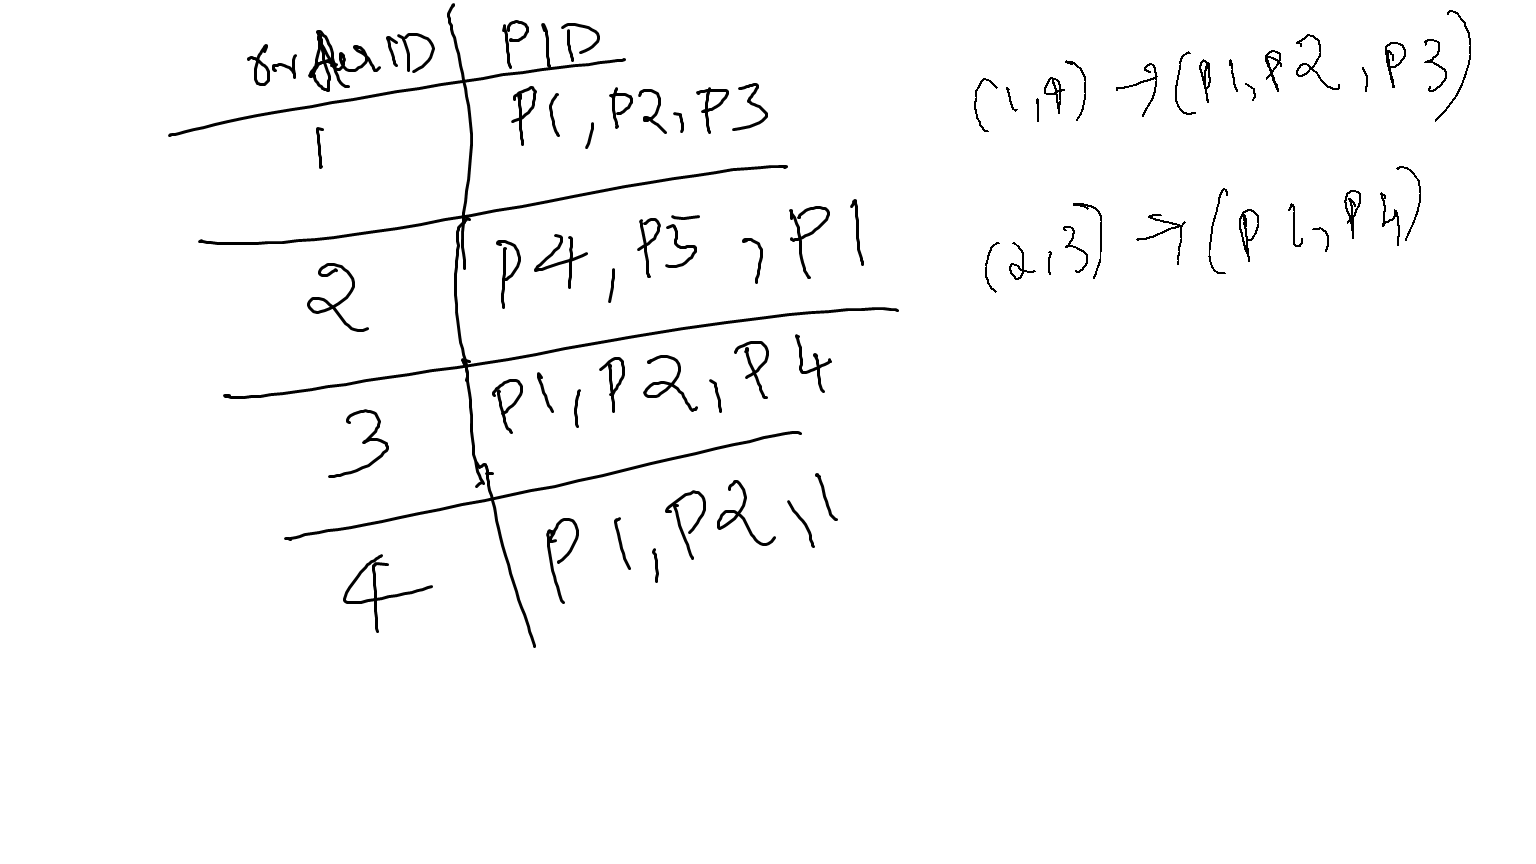 orderID PID
1 P1, P2, P3
2 P4, P5, P1
3 P1, P2, P4
4 P1, P2, 1
(1,4) → (P1, P2, P3)
(2,3) → (P1, P4)